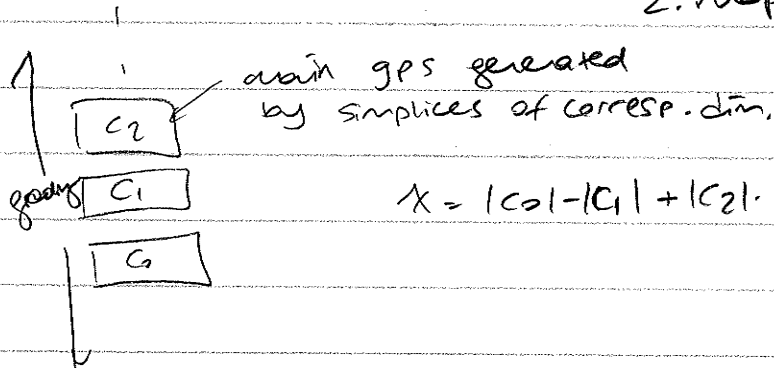 2.
chain gps generated
C₂ by simplices of corresp. dim.
grading C₁ χ = |C₀| - |C₁| + |C₂|.
C₀